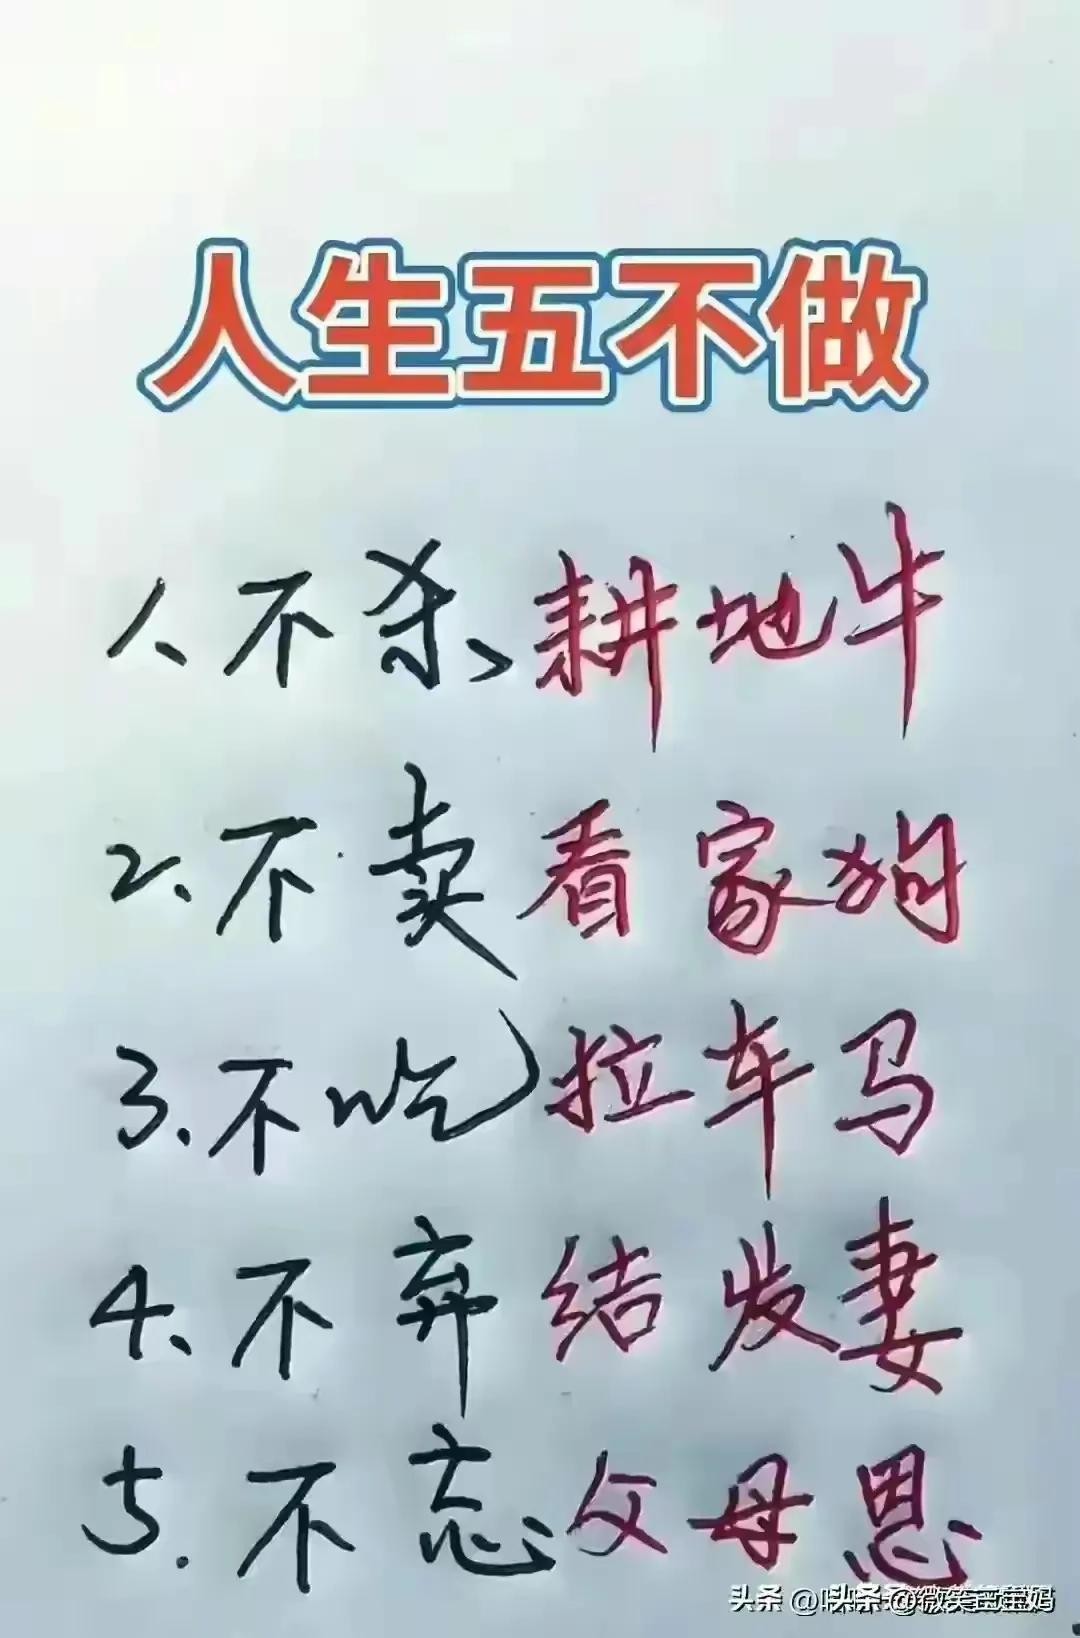 人生五不做
1、不杀、耕地牛
2、不卖看家狗
3.不吃拉车马
4、不弃结发妻
5.不忘父母恩
头条 @微笑宝宝妈